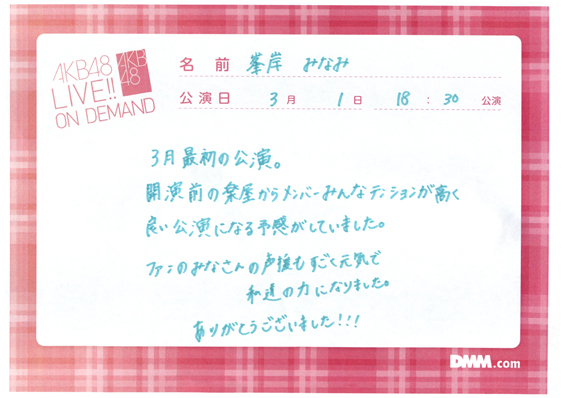 AKB48
LIVE!!
ON DEMAND
AKB
48
名 前 峯岸 みなみ
公演日 3月 1日 18:30 公演
3月最初の公演。
開演前の楽屋からメンバーみんなテンションが高く
良い公演になる予感がしていました。
ファンのみなさんの声援もすごく元気で
私達の力になりました。
ありがとうございました!!!
DMM.com